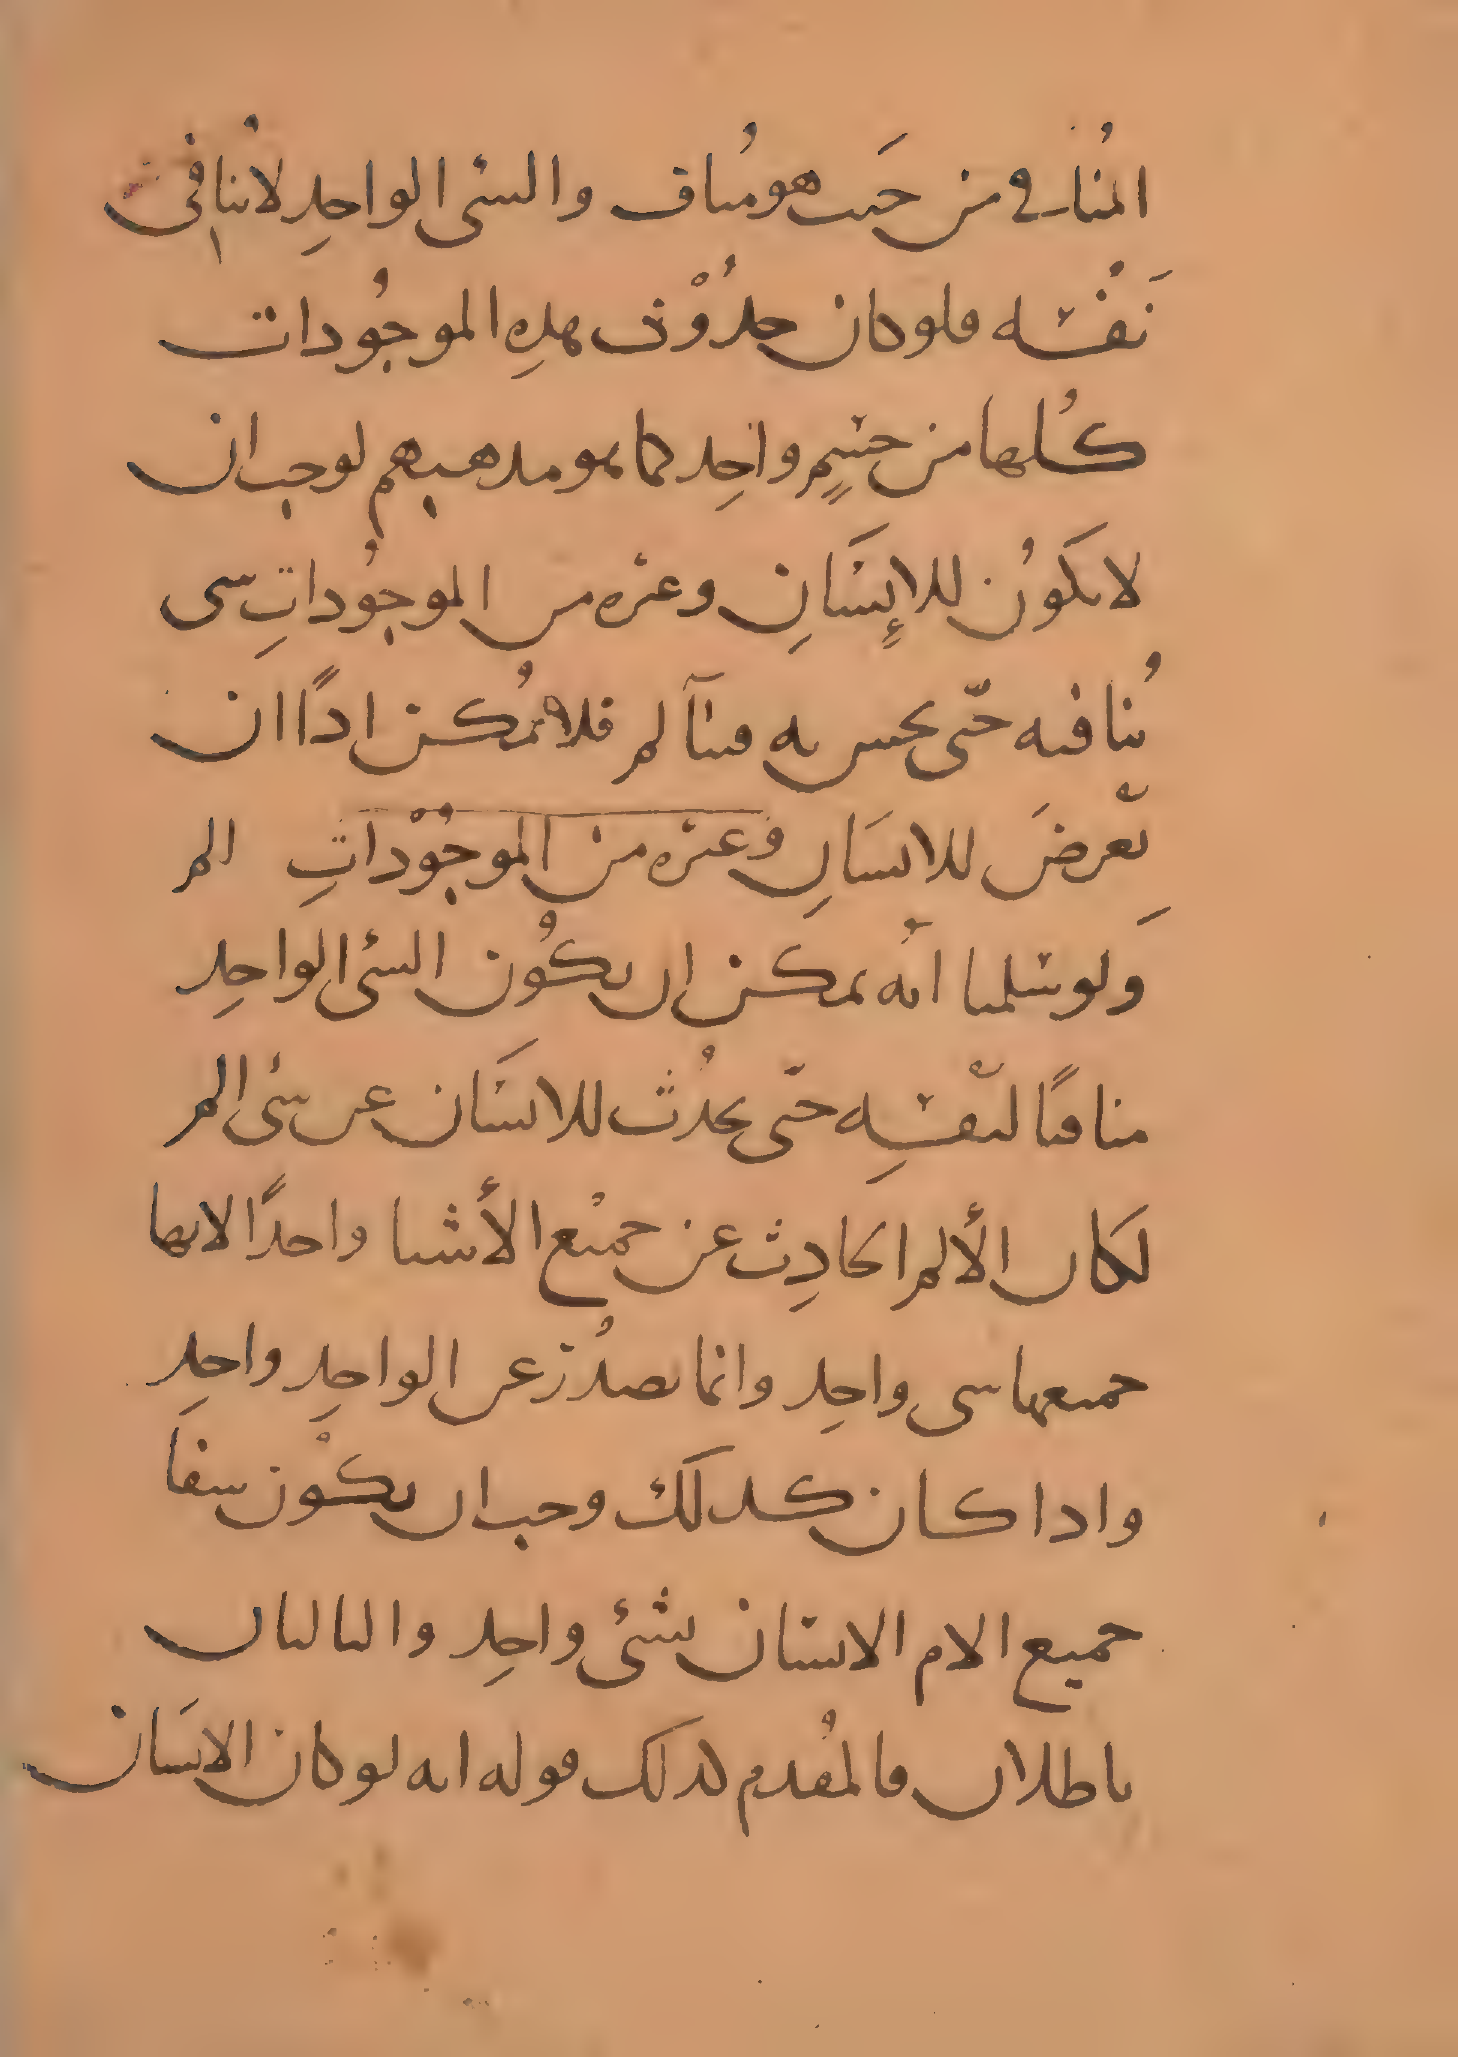 المُنافي من حَيث هو مُناف والشئ الواحِد لا ينافي
نَفْسَه فلو كان حدُوْث هذِه الموجُودات
كُلها من جسْمٍ واحِد كما هو مذهبهم لوجب ان
لا يكَوُن للإِنسَانِ وغيره من الموجُوداتِ شى
يُنافيه حتّى يحس به فيتألم فلا يُمكن اذًا ان
يعّرضَ للانسَانِ وغيره من الموجُوْداتِ الم
وَلو سلمنا انّه يمكن ان يكوُن الشئ الواحِد
منافيًا لنفّسِه حتّى يحدُث للانسَان عن شئ الم
لكَان الألم الحادِث عن جميع الأشيا واحدًا لانها
جميعها شى واحِد وانما يصدُر عن الواحِدِ واحِد
واذا كان كذلَك وجب ان يكوْن شفا
جميع الام الانسان بشئ واحِد والتاليان
باطلان فالمُقدم كذلَك قوله انه لو كان الانسَان